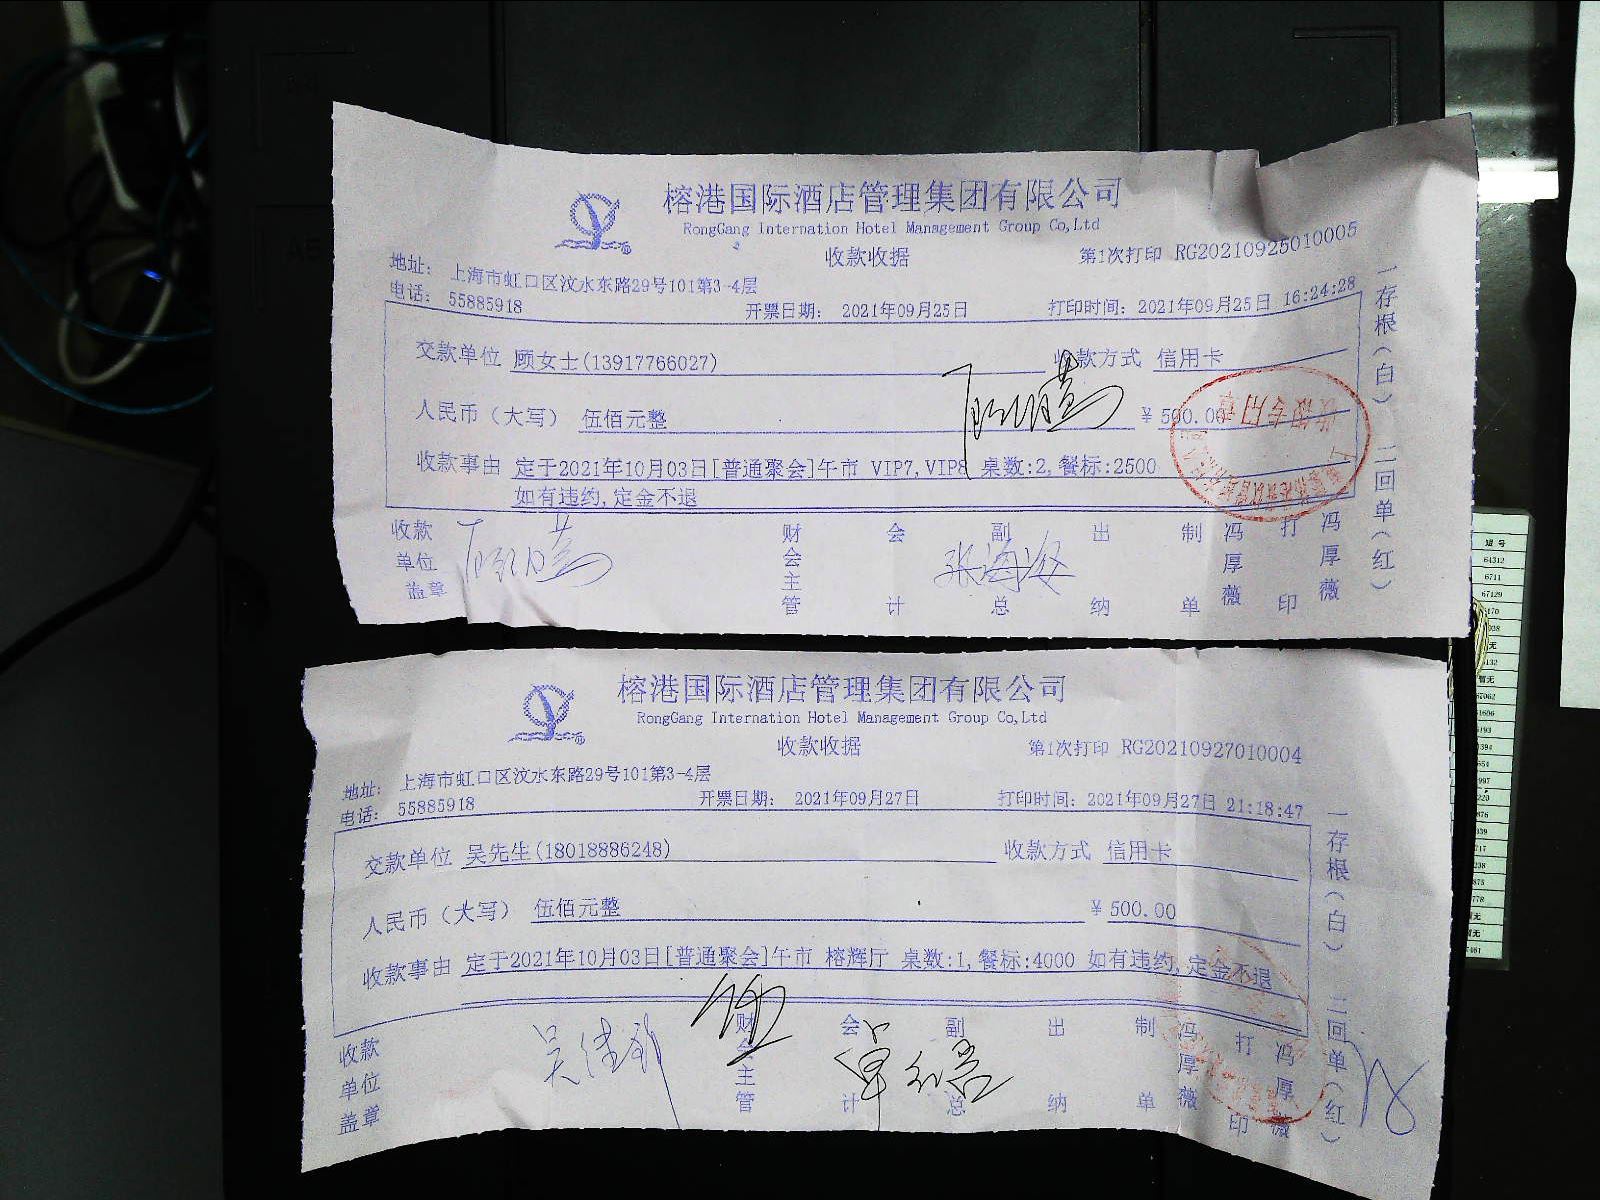 榕港国际酒店管理集团有限公司
RongGang Internation Hotel Management Group Co,Ltd
收款收据
第1次打印 RG20210925010005
地址: 上海市虹口区汶水东路29号101第3-4层
电话: 55885918
开票日期: 2021年09月25日
打印时间: 2021年09月25日 16:24:28
交款单位 顾女士(13917766027)
收款方式 信用卡
人民币（大写） 伍佰元整
¥ 500.00
收款事由 定于2021年10月03日[普通聚会]午市 VIP7,VIP8 桌数:2,餐标:2500
如有违约,定金不退
收款单位盖章
财会主管
会计
副总
出纳
制单
冯厚薇
打印
冯厚薇
一存根（白） 二回单（红）
张海海
榕港国际酒店管理集团有限公司
RongGang Internation Hotel Management Group Co,Ltd
收款收据
第1次打印 RG20210927010004
地址: 上海市虹口区汶水东路29号101第3-4层
电话: 55885918
开票日期: 2021年09月27日
打印时间: 2021年09月27日 21:18:47
交款单位 吴先生(18018886248)
收款方式 信用卡
人民币（大写） 伍佰元整
¥ 500.00
收款事由 定于2021年10月03日[普通聚会]午市 榕辉厅 桌数:1,餐标:4000 如有违约,定金不退
收款单位盖章
财会主管
会计
副总
出纳
制单
冯厚薇
打印
冯厚薇
一存根（白） 二回单（红）
短号
64312
6711
67129